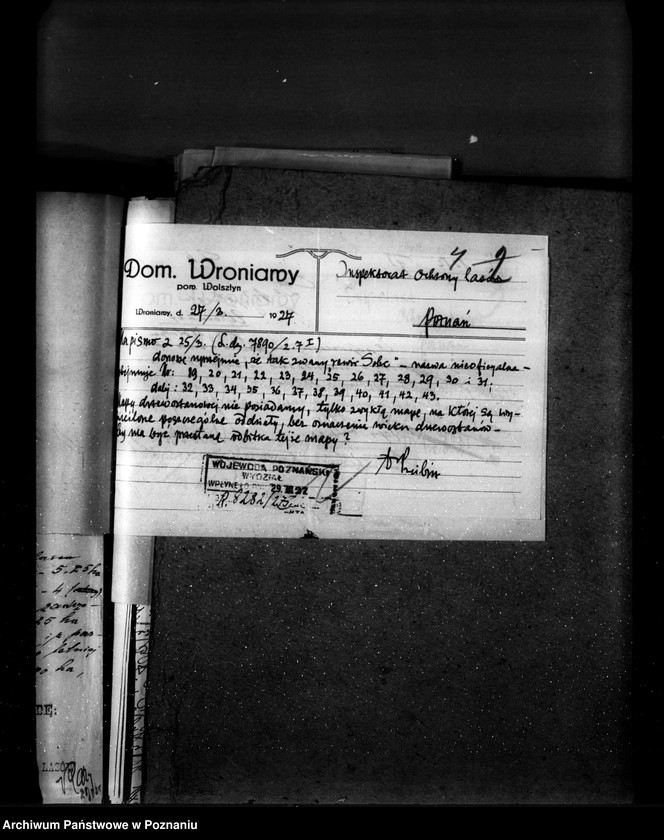 4 9
Dom. Wroniawy
pow. Wolsztyn
Wroniawy, d. 27/3. 1927
Inspektorat Ochrony Lasów
Poznań
Na pismo z 25/3. (L.dz. 7890/27 I)
donoszę uprzejmie, że tak zwany rewir "Sobc" - nazwa nieoficjalna -
obejmuje Nr: 19, 20, 21, 22, 23, 24, 25, 26, 27, 28, 29, 30 i 31.
dalej: 32, 33, 34, 35, 36, 37, 38, 39, 40, 41, 42, 43.
Mapy drzewostanowej nie posiadamy, tylko zwykłą mapę, na której są wy-
poszczególne oddziały, bez oznaczenia wieku drzewostanów -
Czy ma być przesłana odbitka tejże mapy?
WOJEWODA POZNAŃSKI
WYDZIAŁ
WPŁYNĘŁO 29.III.27
R. 8282/27
5.25 ha
- 4
25 ha
i z pas-
ha,
DĘ:
LASÓ
Archiwum Państwowe w Poznaniu